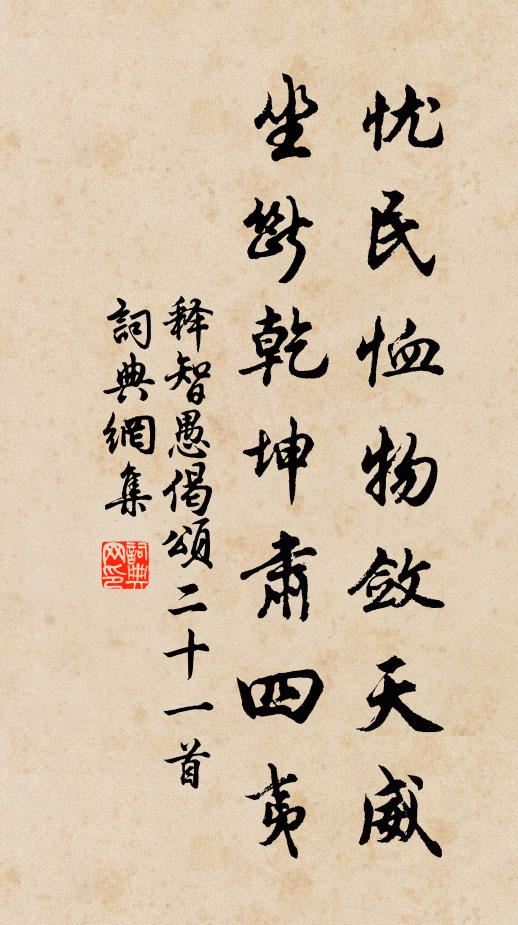 忧民恤物敛天威
坐斷乾坤肅四夷
释智愚偈頌二十一首
詞典網集
詞典网印